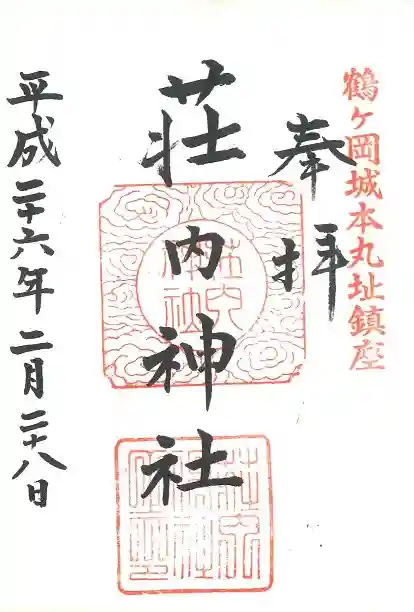 鶴ヶ岡城本丸址鎮座
奉拝
荘内神社
平成二十六年二月二十八日